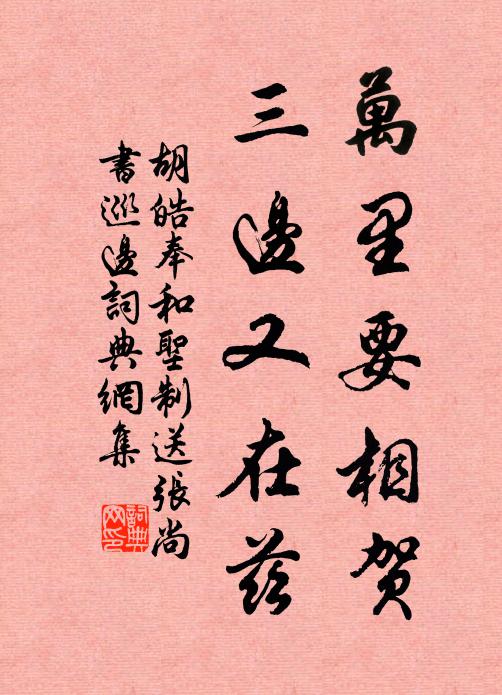 萬里要相贺
三邊又在茲
胡皓奉和聖制送張尚
書巡邊詞典網集
詞典
网印